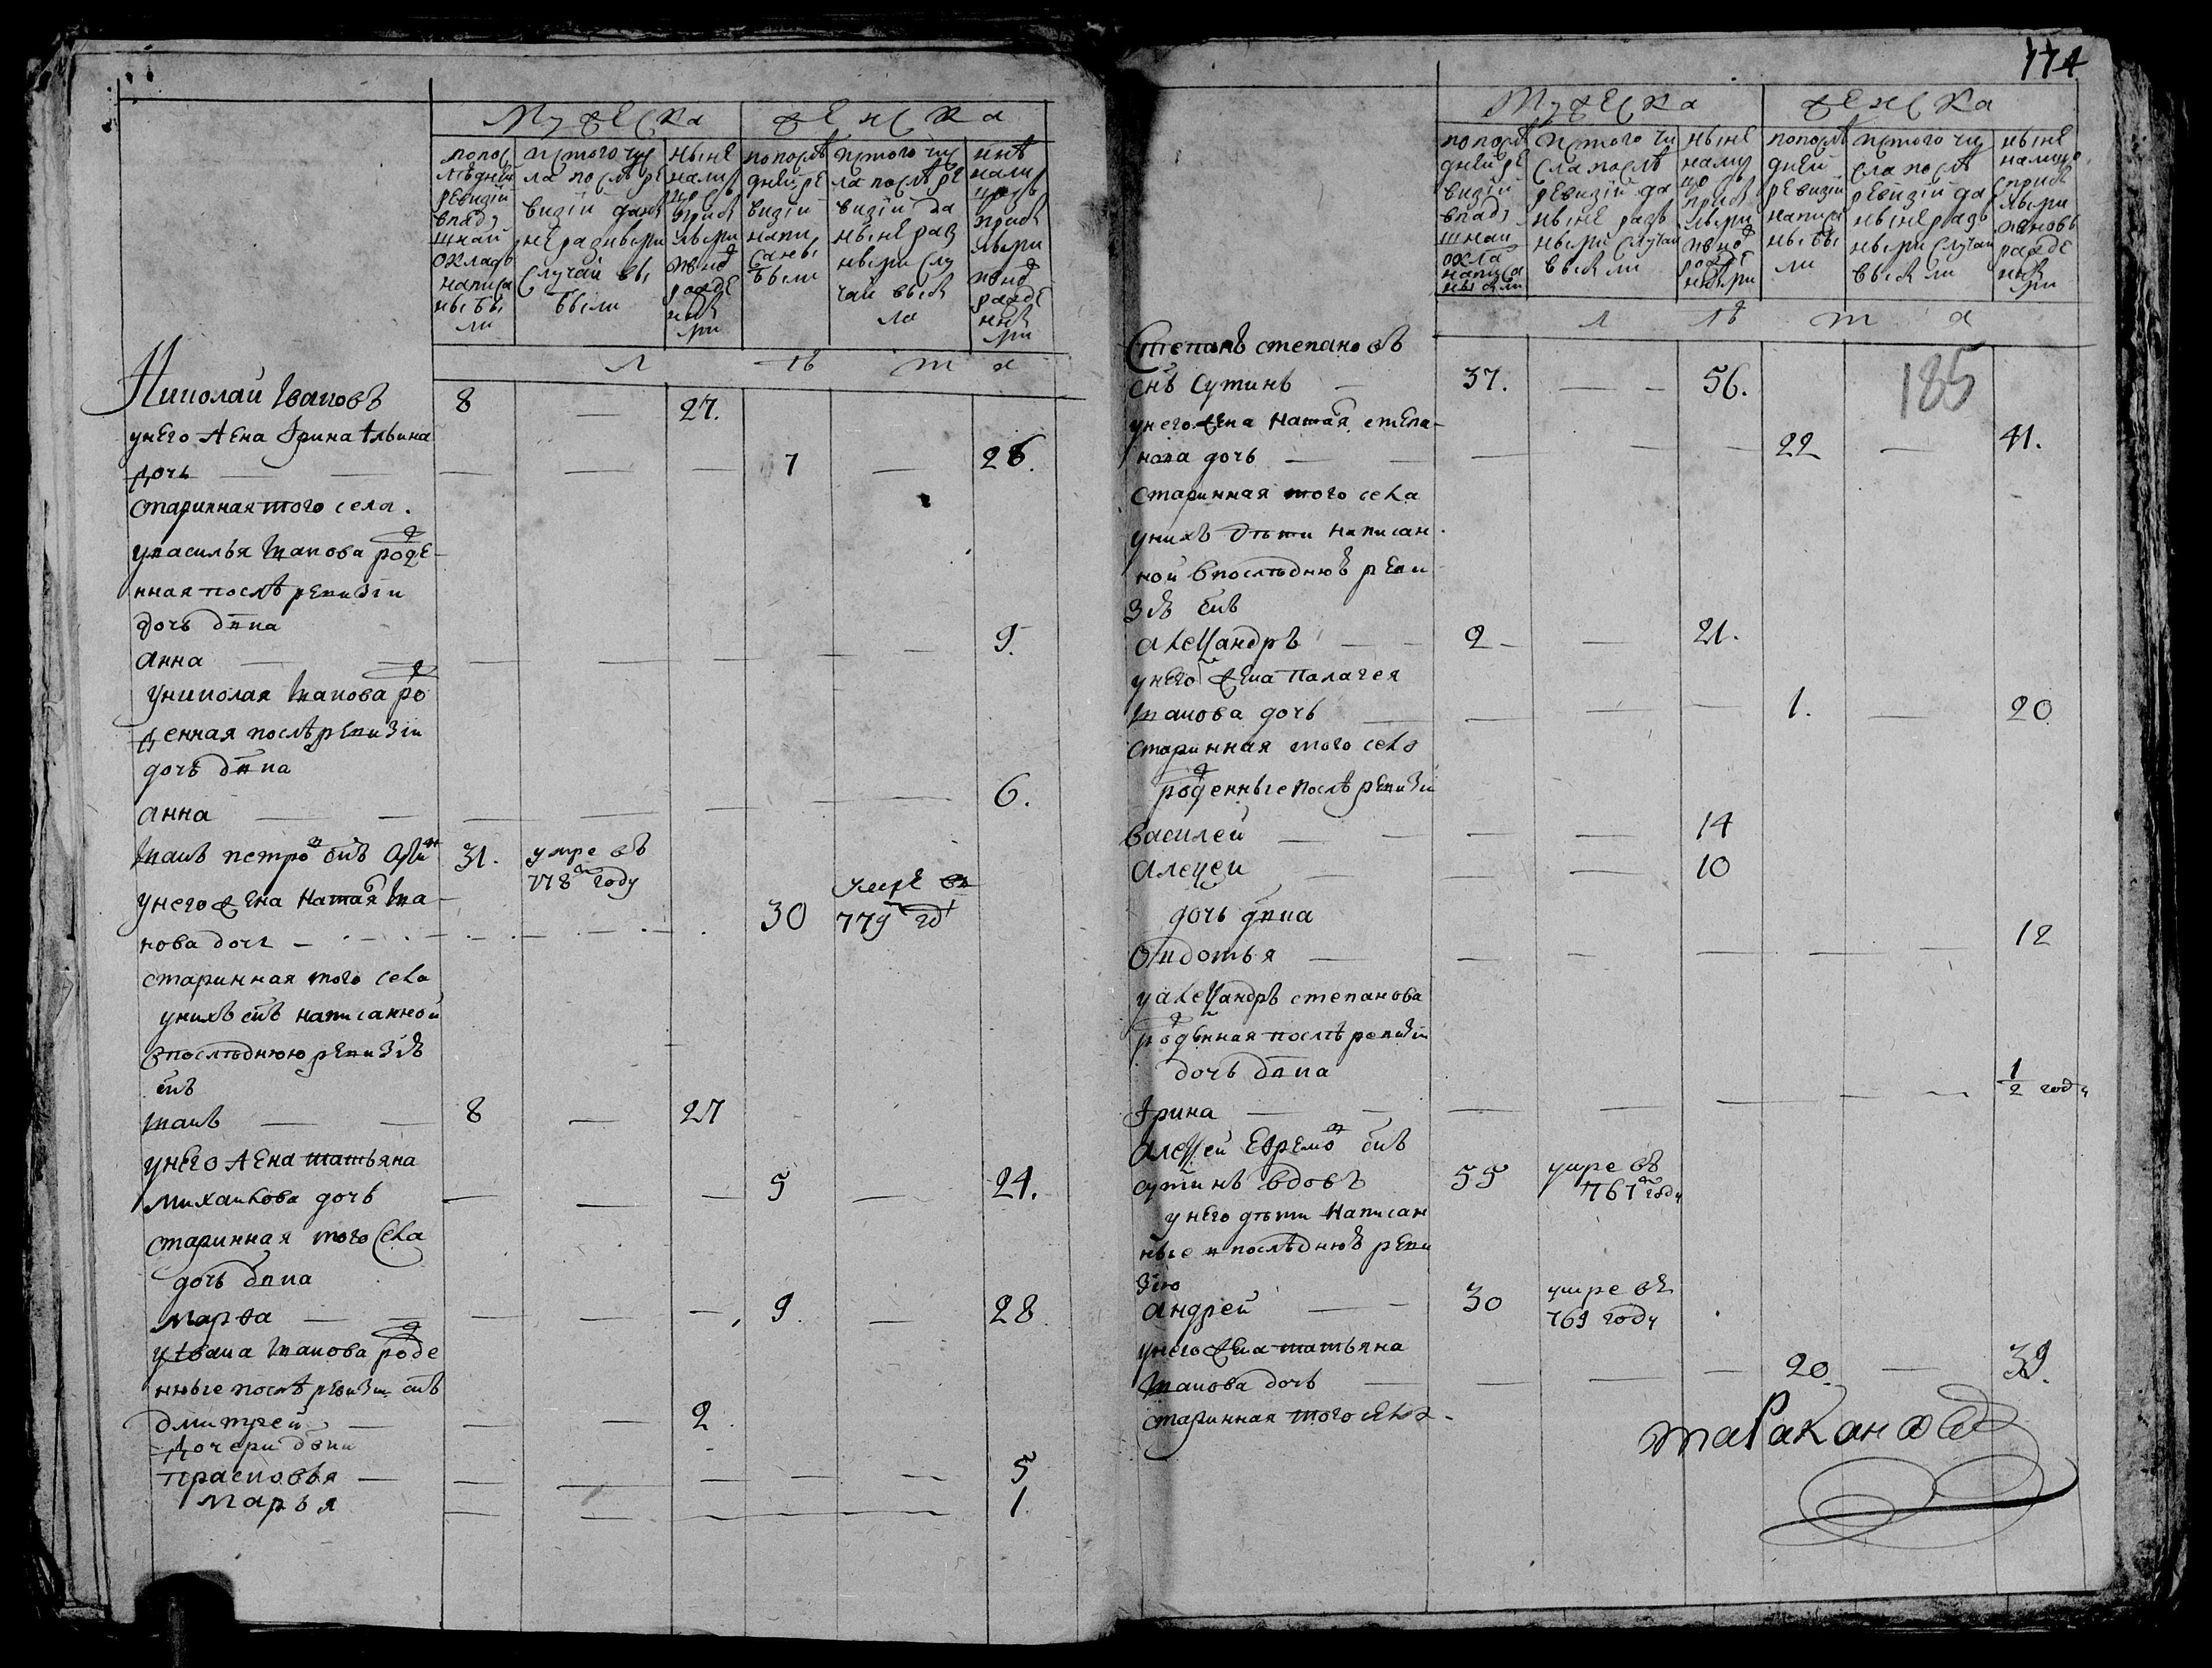 Мужеска
Женска
по пос
лѣдней
ревизіи
в подУ
шной
окладъ
написа
ны бы
ли
ис того чис
ла послѣ ре
визіи
разными
случаи вы
были
ныне
налицо
по послѣ
дней ре
визіи
напи
саны
были
ис того чис
ла послѣ ре
визіи да
ныне раз
ными слу
чаи выб
ло
Л ѣ т а
Николай Іванов 8 — 27.
у него жена Ірина Ільина
дочь — — — — — 7 — 26.
старинная того села.
у василья Іванова рожде
нная послѣ ревизіи
дочь дѣвка
анна — — — — — — — 9.
у николая Іванова ро
жденная послѣ ревизіи
дочь дѣвка
анна — — — — — — 6.
Іванъ петровъ снъ 31. умре въ
778м году
у него жена Наталя Ива
нова дочь — 30 умре в
779м гд
старинная того села
у нихъ снъ написанной
в последнюю ревизію
снъ
Іванъ — — 8 — 27
у него жена татьяна
михаилова дочь — — — 5 — 24.
старинная того села
дочь дѣвка
марфа — — — — — 9. — 28
у Івана Іванова рожде
нные послѣ ревизіи снъ
дмитрей — — — 2
дочери дѣвки
прасковья — — — — — — 5
марья — — — — — 1.
114
Мужеска
Женска
по послѣ
дней ре
визіи
в подУ
шной
окла
написа
ны были
ис того чи
сла послѣ
ревизіи да
ныне разъ
ными случаи
выбыли
ныне
налицо
по послѣ
дней
ревизіи
написа
ны бы
ли
ис того чи
сла послѣ
ревизіи да
ныне разъ
ными случаи
выбыли
ныне
налицо
Л ѣ т а
185
Степанъ степановъ
снъ Сутинъ — 37. — — 56.
у него жена Наталя степа-
нова дочь — — — — — 22 — 41.
старинная того села
у нихъ дѣти написан
ной в последнюю реви
зію снъ
александръ — — 2 — — 21.
у него жена палагея
Іванова дочь — — — — 1. — 20
старинная того села
рожденные послѣ ревизіи
василей — — — — 14
алексей — — — 10
дочь дѣвка
овдотья — — — — — — 12
у александръ степанова
рожденная послѣ ревизіи
дочь дѣвка
Ірина — — — — — — — 1/2 году
алексей Ефремовъ снъ
сутинъ вдовъ 55 умре въ
767м году
у него дѣти написан
ные в последнюю реви
зію
андрей — — 30 умре въ
769 году
у него жена татьяна
Іванова дочь — — — — 20. — 39.
старинная того села
таракановъ